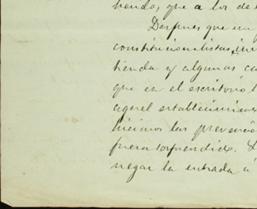 bando, que a los de
Despues que un
constitucionalistas,
tienda y algunas ca
que en el escritorio
aquel establecimien
hicimos las prevenció
fuera sorprendido.
negar la entrada á